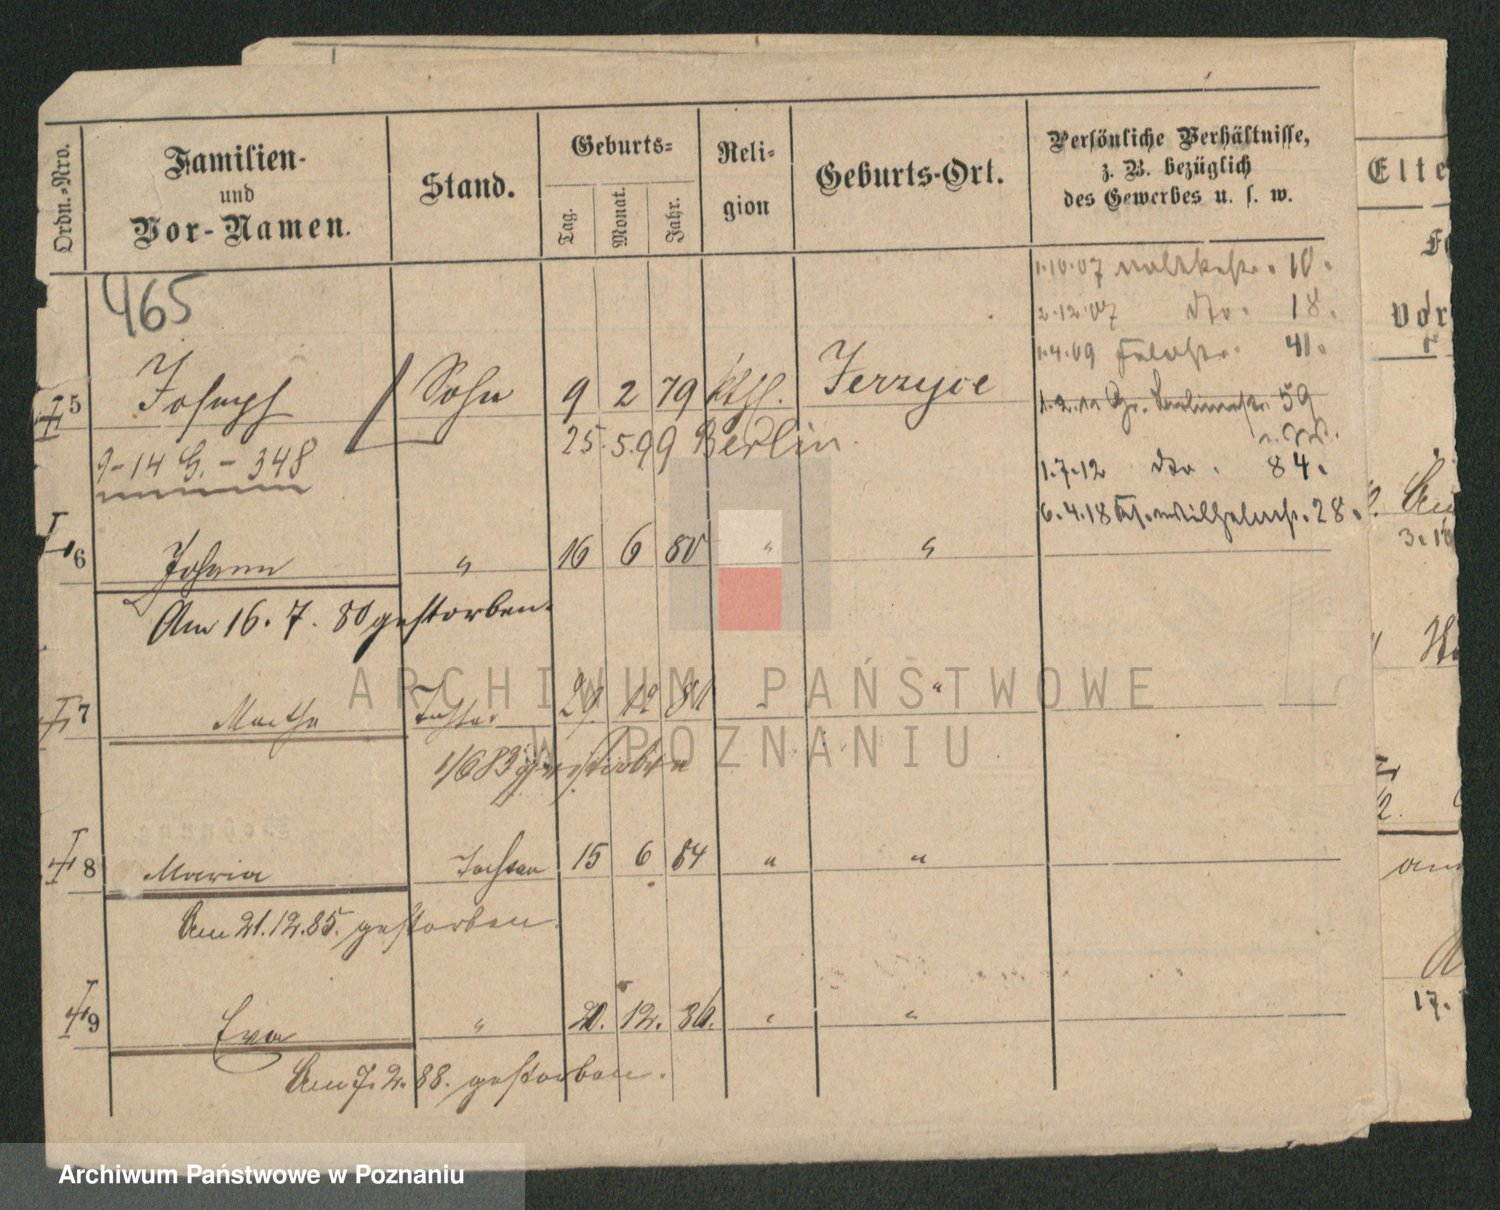 Ordn.-Nro.
Familien-
und
Vor-Namen.
Stand.
Geburts-
Tag.
Monat.
Jahr.
Reli-
gion
Geburts-Ort.
Persönliche Verhältnisse,
z. B. bezüglich
des Gewerbes u. s. w.
Elte
Vor
465
1.10.07 Moltkestr. 10.
2.12.07 dto. 18.
1.4.09 41.
5 Joseph Sohn 9 2 79 kth. Jerzyce
59
25.5.99 Berlin.
9-14 G. - 348
1.7.12 dto. 84.
6.4.18 28.
6 Johann " 16 6 80 " "
Am 16. 7. 80 gestorben.
7 Martha Tochter 12 81 "
1/6 83 gestorben
8 Maria Tochter 15 6 84 " "
Am 21.12.85. gestorben.
9 Eva " 20. 12. 86. " "
Am 7. 2. 88. gestorben.
17.
ARCHIWUM PAŃSTWOWE
W POZNANIU
Archiwum Państwowe w Poznaniu